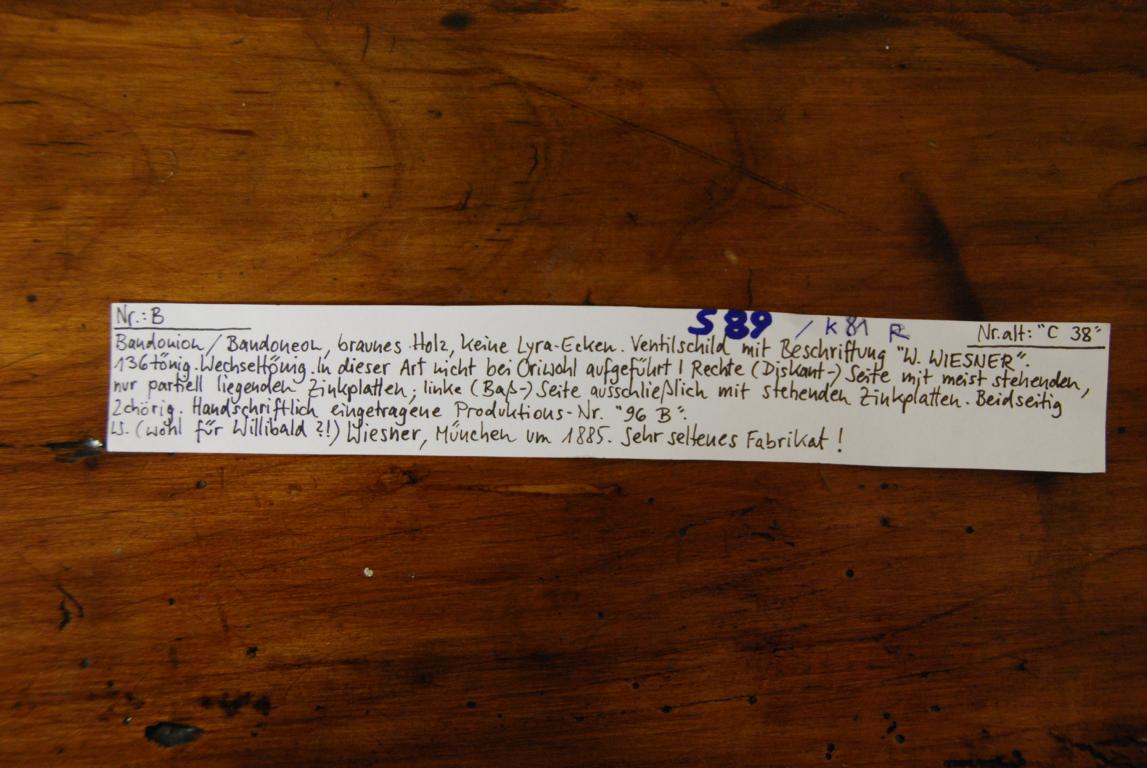 Nr.: B
S 89 / K 81 R
Nr. alt: "C 38"
Bandonion / Bandoneon, braunes Holz, keine Lyra-Ecken. Ventilschild mit Beschriftung "W. WIESNER".
136tönig. Wechseltönig. In dieser Art nicht bei Oriwohl aufgeführt! Rechte (Diskant-) Seite mit meist stehenden,
nur partiell liegenden Zinkplatten; linke (Baß-) Seite ausschließlich mit stehenden Zinkplatten. Beidseitig
2chörig. Handschriftlich eingetragene Produktions-Nr. "96 B".
W. (wohl für Willibald ?!) Wiesner, München um 1885. Sehr seltenes Fabrikat!